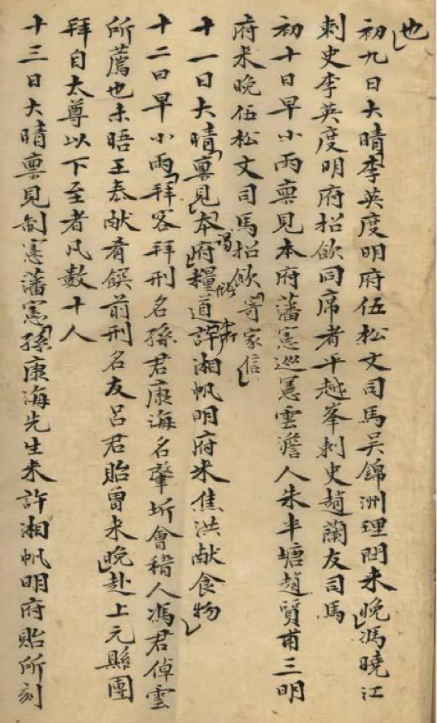 也
初九日大晴李英度明府伍松文司馬吴錦洲理問来晚馮曉江
刺史李英度明府招飲同席者平越峯刺史趙蘭友司馬
初十日早小雨稟見本府藩憲巡憲雲澹人朱半塘趙質甫三明
府来晚伍松文司馬招飲寄家信
十一日大晴稟見本府糧道許湘帆明府来焦洪献食物
十二日早小雨拜客拜刑名孫君康海名肇圻會稽人馮君倬雲
所薦也未晤王泰献肴饌前刑名友呂君貽曾来晚赴上元縣團
拜自太尊以下至者凡數十人
十三日大晴稟見制憲藩憲孫康海先生来許湘帆明府貽所刻